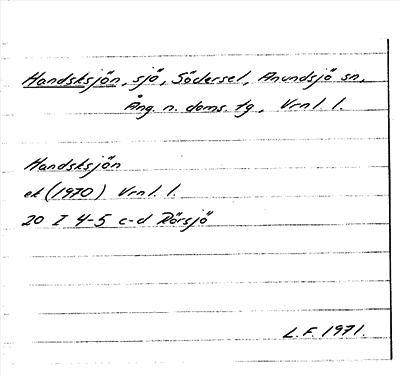 Handsksjön, sjö, Södersel, Anundsjö sn,
Ång. n. doms. tg, Vrnl. l.
Handsksjön
ek (1970) Vrnl. l.
20 I 4-5 c-d Rörsjö
L.F. 1971.